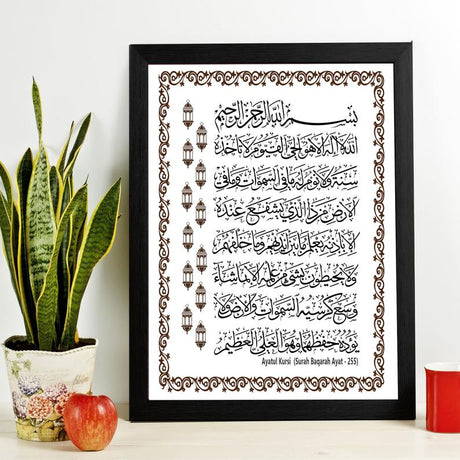 بسم الله الرحمن الرحيم
الله لا إله إلا هو الحي القيوم لا تأخذه
سنة ولا نوم له ما في السموات وما في
الأرض من ذا الذي يشفع عنده
إلا بإذنه يعلم ما بين أيديهم وما خلفهم
ولا يحيطون بشيء من علمه إلا بما شاء
وسع كرسيه السموات والأرض ولا
يؤده حفظهما وهو العلي العظيم
Ayatul Kursi (Surah Baqarah Ayat - 255)